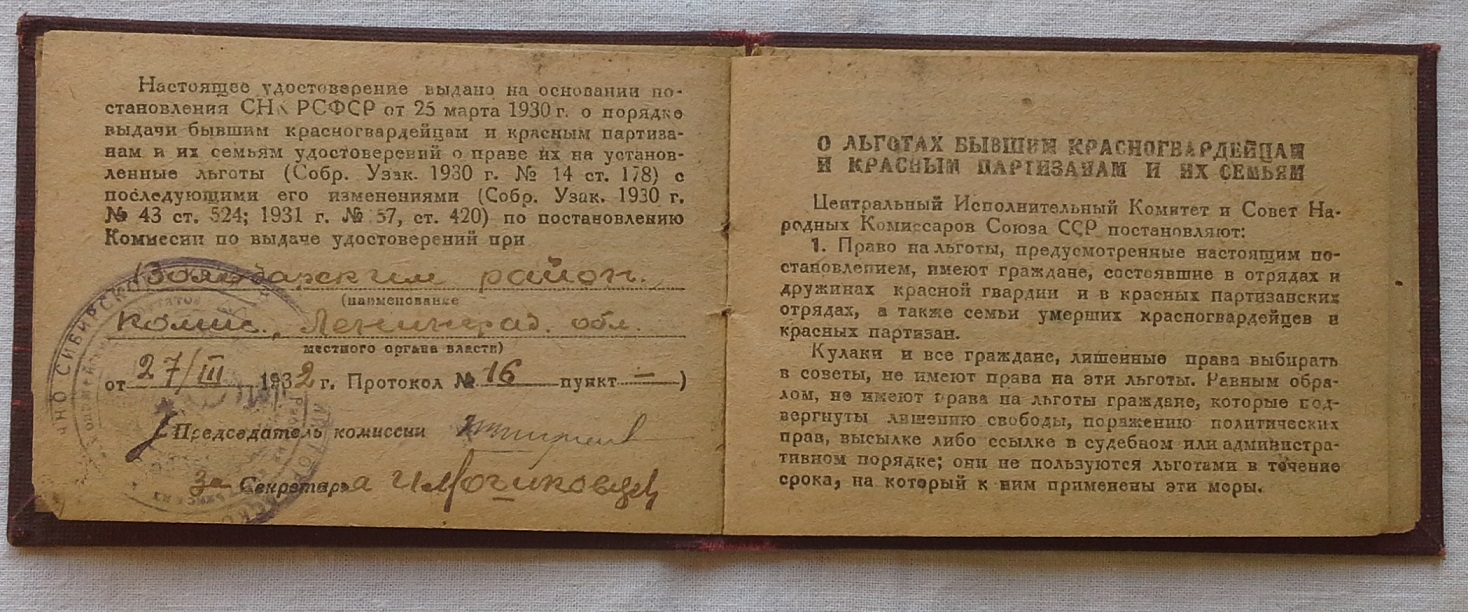 Настоящее удостоверение выдано на основании по-
становления СНК РСФСР от 25 марта 1930 г. о порядке
выдачи бывшим красногвардейцам и красным партиза-
нам и их семьям удостоверений о праве их на установ-
ленные льготы (Собр. Узак. 1930 г. № 14 ст. 178) с
последующими его изменениями (Собр. Узак. 1930 г.
№ 43 ст. 524; 1931 г. № 57, ст. 420) по постановлению
Комиссии по выдаче удостоверений при
район.
(наименование
Комис., Ленинград. обл.
местного органа власти)
от 27/III 1932 г. Протокол № 16 пункт — )
Председатель комиссии
За Секретаря
О ЛЬГОТАХ БЫВШИМ КРАСНОГВАРДЕЙЦАМ
И КРАСНЫМ ПАРТИЗАНАМ И ИХ СЕМЬЯМ
Центральный Исполнительный Комитет и Совет На-
родных Комиссаров Союза ССР постановляют:
1. Право на льготы, предусмотренные настоящим по-
становлением, имеют граждане, состоявшие в отрядах и
дружинах красной гвардии и в красных партизанских
отрядах, а также семьи умерших красногвардейцев и
красных партизан.
Кулаки и все граждане, лишенные права выбирать
в советы, не имеют права на эти льготы. Равным обра-
зом, не имеют права на льготы граждане, которые под-
вергнуты лишению свободы, поражению политических
прав, высылке либо ссылке в судебном или администра-
тивном порядке; они не пользуются льготами в течение
срока, на который к ним применены эти меры.